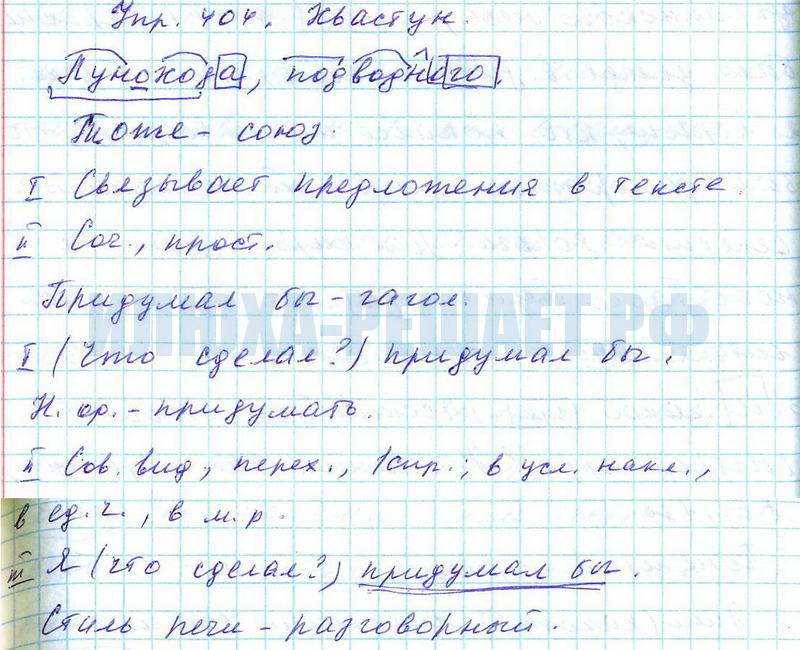 Упр. 404. Хвастун.
Лунохода, подводного.
Тоже - союз.
I Связывает предложения в тексте.
II Соч., прост.
Придумал бы - гагол.
ИЛЮХА-РЕШАЕТ.РФ
I (Что сделал?) придумал бы.
Н. ф. - придумать.
II Сов. вид, перех., I спр.; в усл. накл.,
в ед. ч., в м.р.
III Я (что сделал?) придумал бы.
Стиль речи - разговорный.